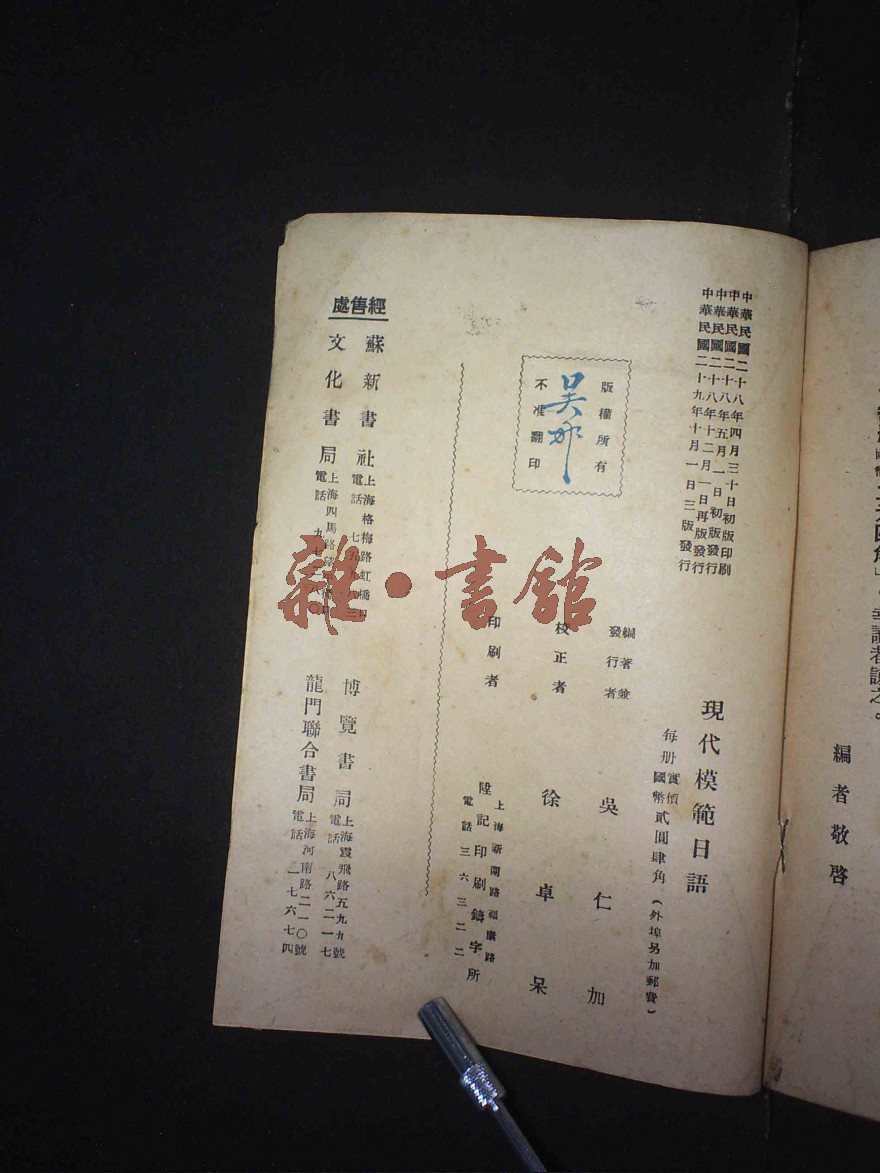 中華民國二十八年四月三十日初版印刷
中華民國二十八年五月一日初版發行
中華民國二十八年十二月一日再版發行
中華民國二十九年十月一日三版發行
版權所有
不准翻印
現代模範日語
每册實價國幣貳圓肆角(外埠另加郵費)
編著兼發行者 吳仁加
校正者 徐卓呆
印刷者 陞記印刷鑄字所
上海新閘路福康路
電話三六三二二
經售處
蘇新書社
上海格梅路虹橋
電話 七五
文化書局
上海四馬路
電話 九七
博覽書局
上海霞飛路五九九號
電話 八六二一七
龍門聯合書局
上海河南路二一〇號
電話 一七六七四
雜·書館
編者敬啓
幸讀者諒之。